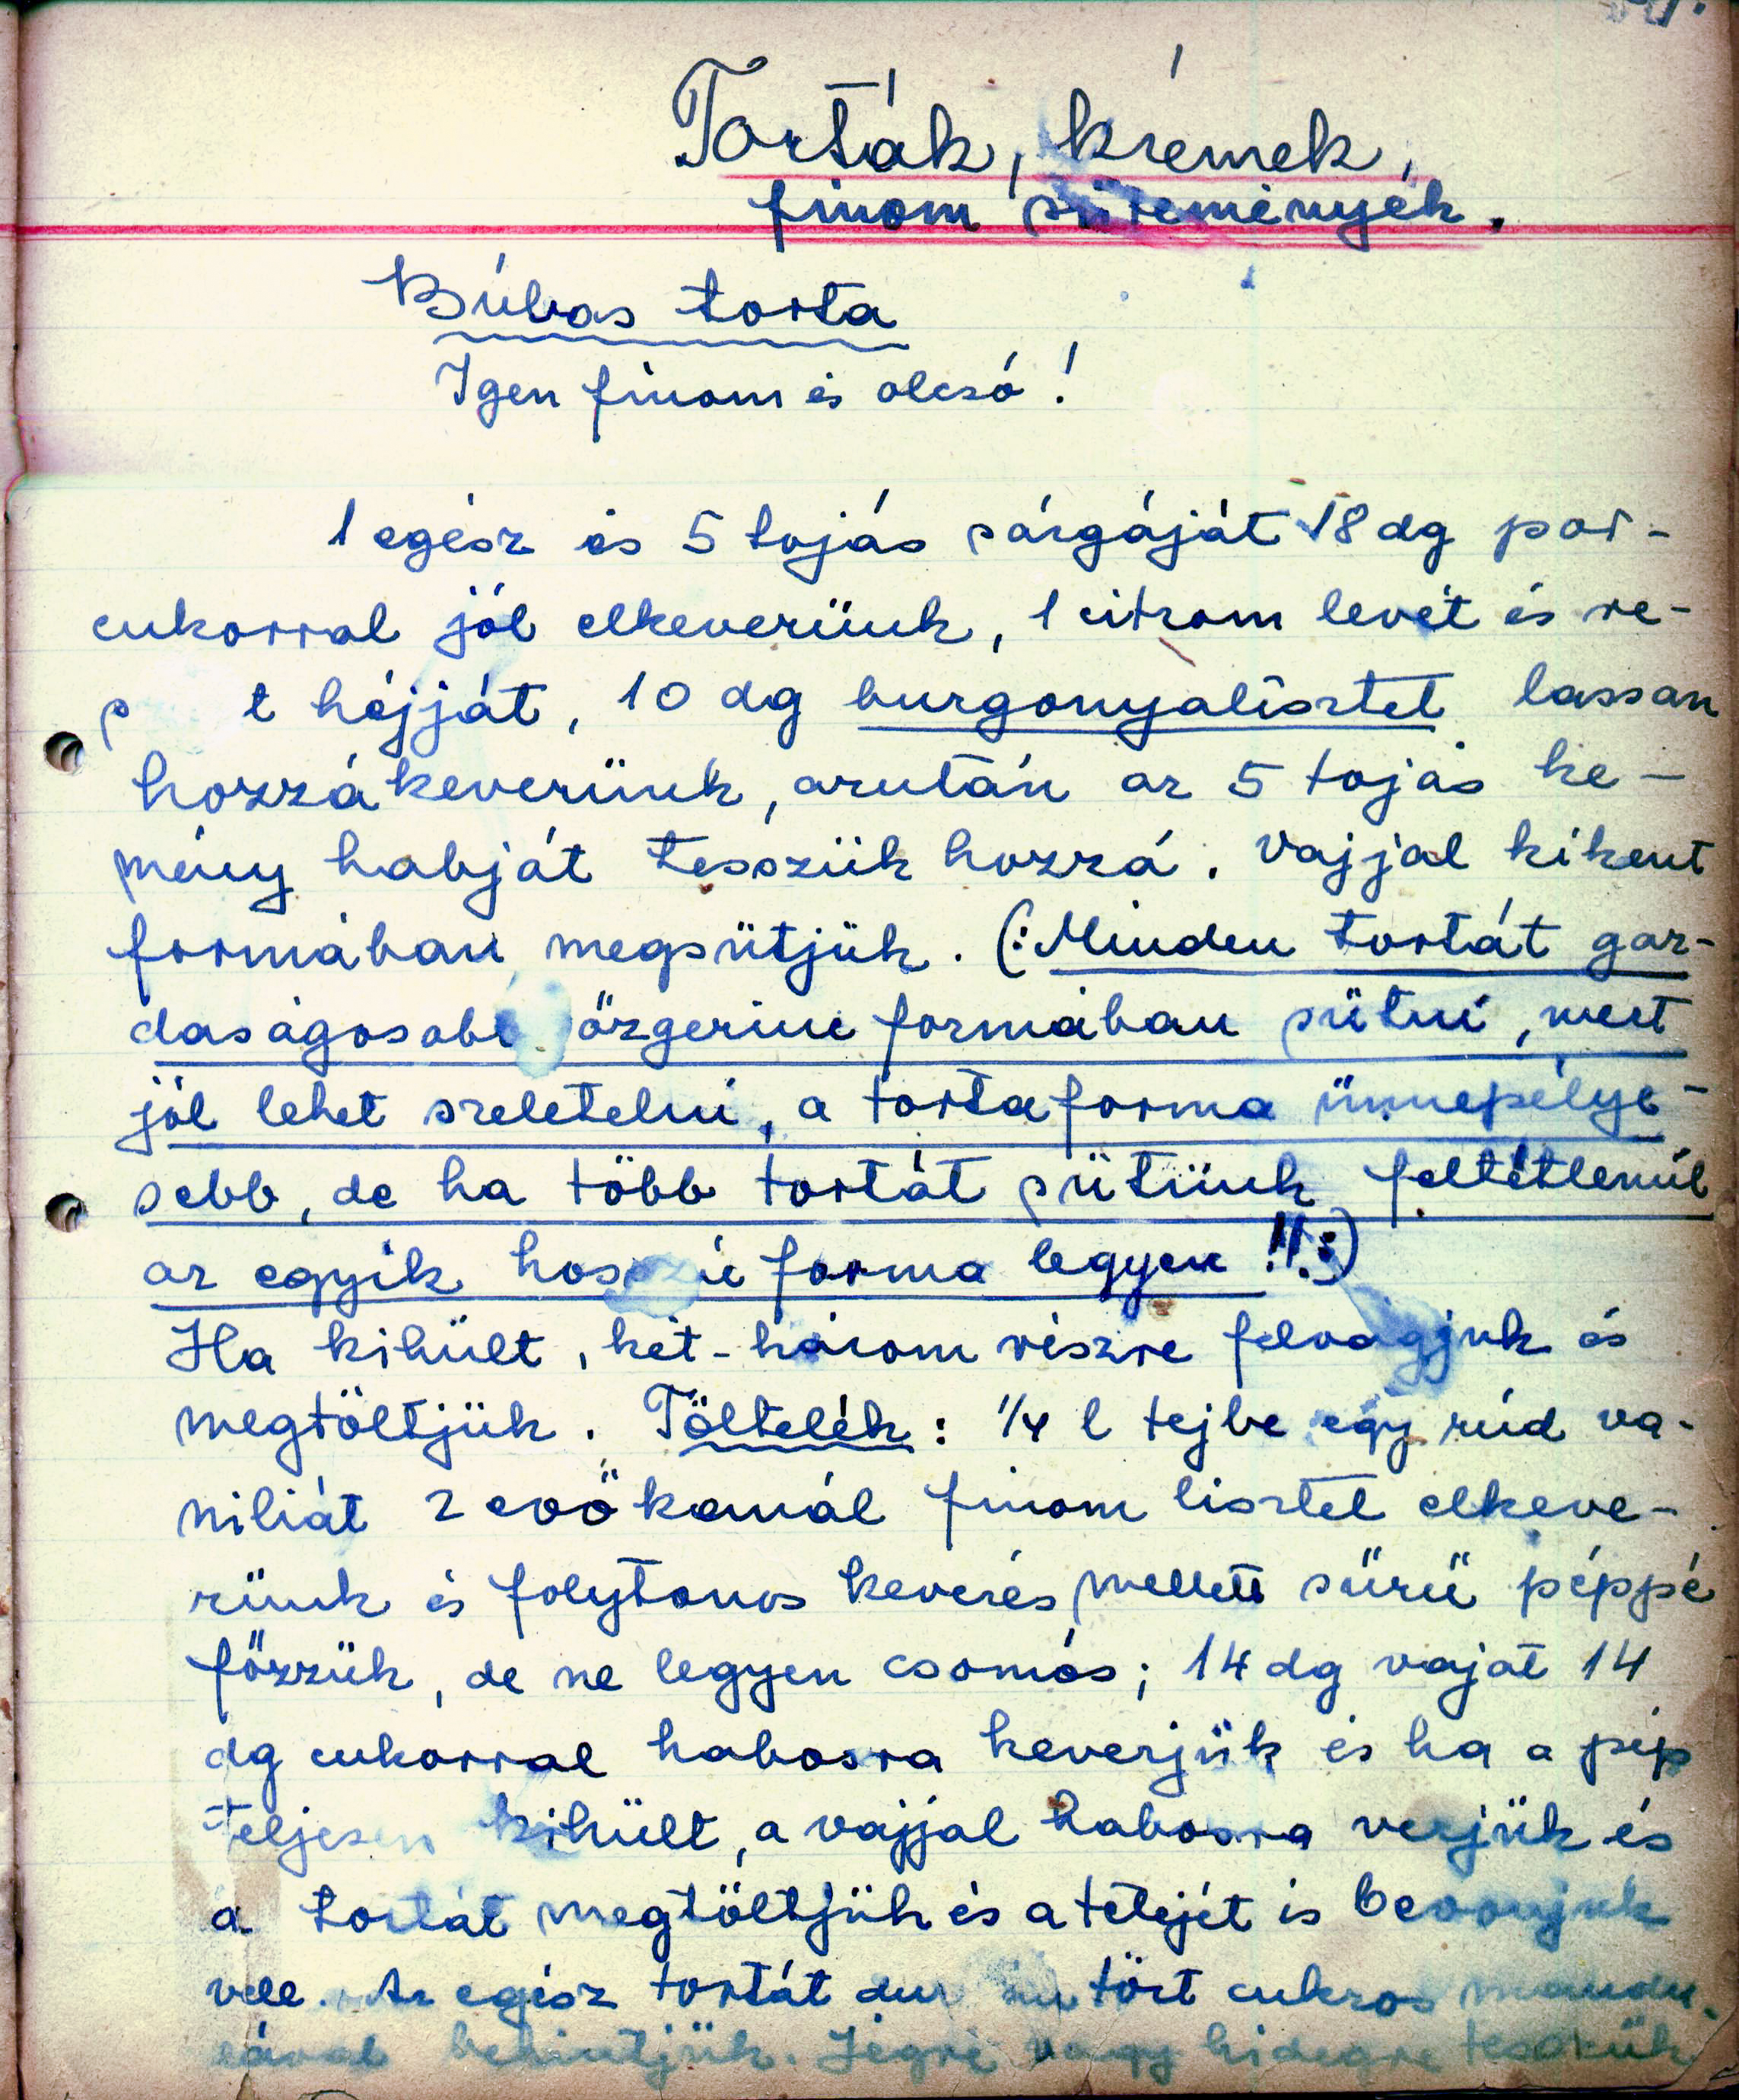 Torták, krémek,
finom sütemények.
Búbos torta
Igen finom és olcsó!
1 egész és 5 tojás sárgáját 18 dg por-
cukorral jól elkeverünk, 1 citrom levét és re-
t héjját, 10 dg burgonyalisztet lassan
hozzákeverünk, azután az 5 tojás ke-
mény habját tesszük hozzá. Vajjal kikent
formában megsütjük. (:Minden tortát gaz-
daságosabb őzgerinc formában sütni, mert
jól lehet szeletelni, a tortaforma ünnepélye-
sebb, de ha több tortát sütünk feltétlenül
az egyik hosszú forma legyen!!:)
Ha kihült, két-három részre felvágjuk és
megtöltjük. Töltelék: 1/4 l tejbe egy rúd va-
niliát 2 evőkanál finom lisztet elkeve-
rünk és folytonos keverés mellett sűrű péppé
főzzük, de ne legyen csomós; 14 dg vajat 14
dg cukorral habosra keverjük és ha a pép
teljesen kihült, a vajjal habosra verjük és
a tortát megtöltjük és a tetejét is bevonjuk
vele. Az egész tortát tört cukros mandu-
lával behintjük. Jégre vagy hidegre tesszük